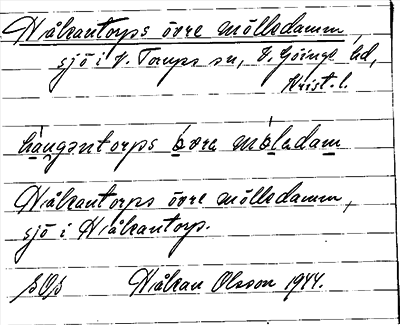 Håkantorps övre mölledamm,
sjö i V. Torups sn, V. Göinge hd,
Krist. l.
hångəntorps övrə mölədam
Håkantorps övre mölledamm,
sjö i Håkantorp.
Håkan Olsson 1944.